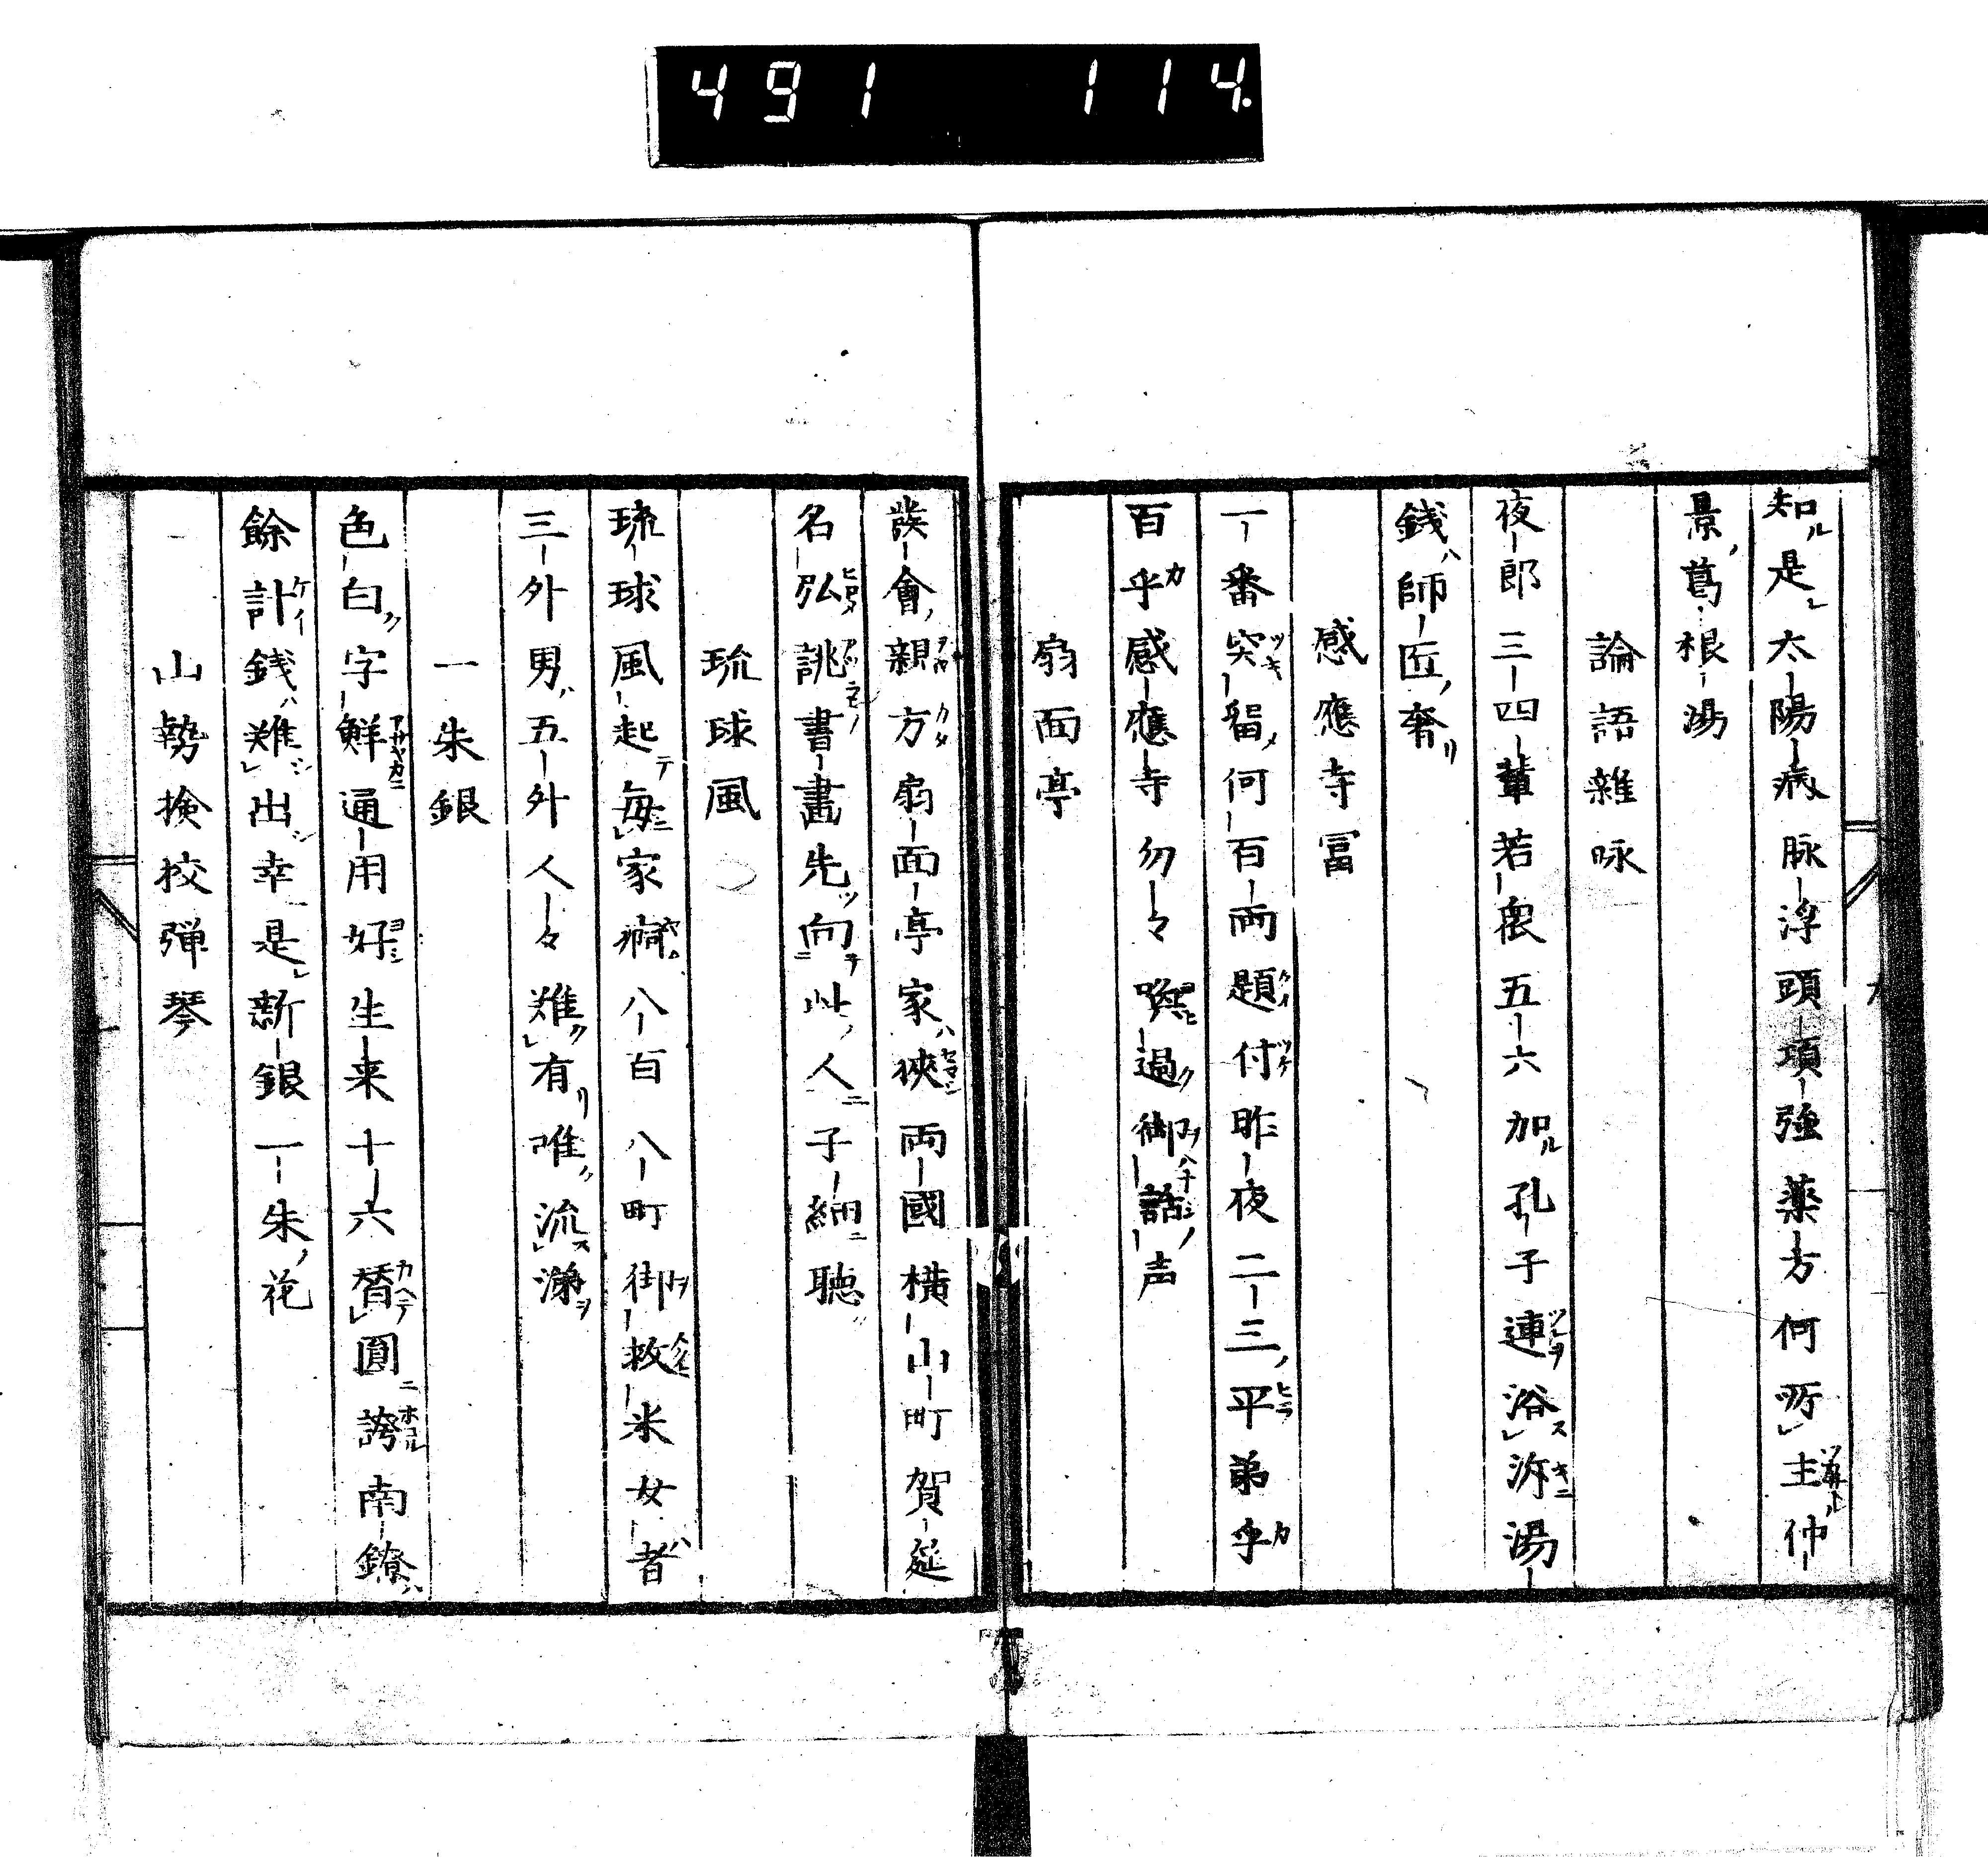 491 114.
知是太陽病脉浮頭項強薬方何所主仲
景葛根湯
論語雑咏
夜郎三四輩若衆五六加孔子連浴泝湯
銭師匠奢
感應寺冨
一番突留何百両題付昨夜二三平弟乎
百乎感應寺勿々喫過御話声
扇面亭
會親方扇面亭家狹両國横山町賀莚
名弘誂書畫先向此人子細聴
琉球風
琉球風起毎家痾八百八町御救米女者
三外男五外人々難有唯流
一朱銀
色白字鮮通用好生来十六替圓誇南鐐
餘計銭難出幸是新銀一朱花
山勢検挍弾琴